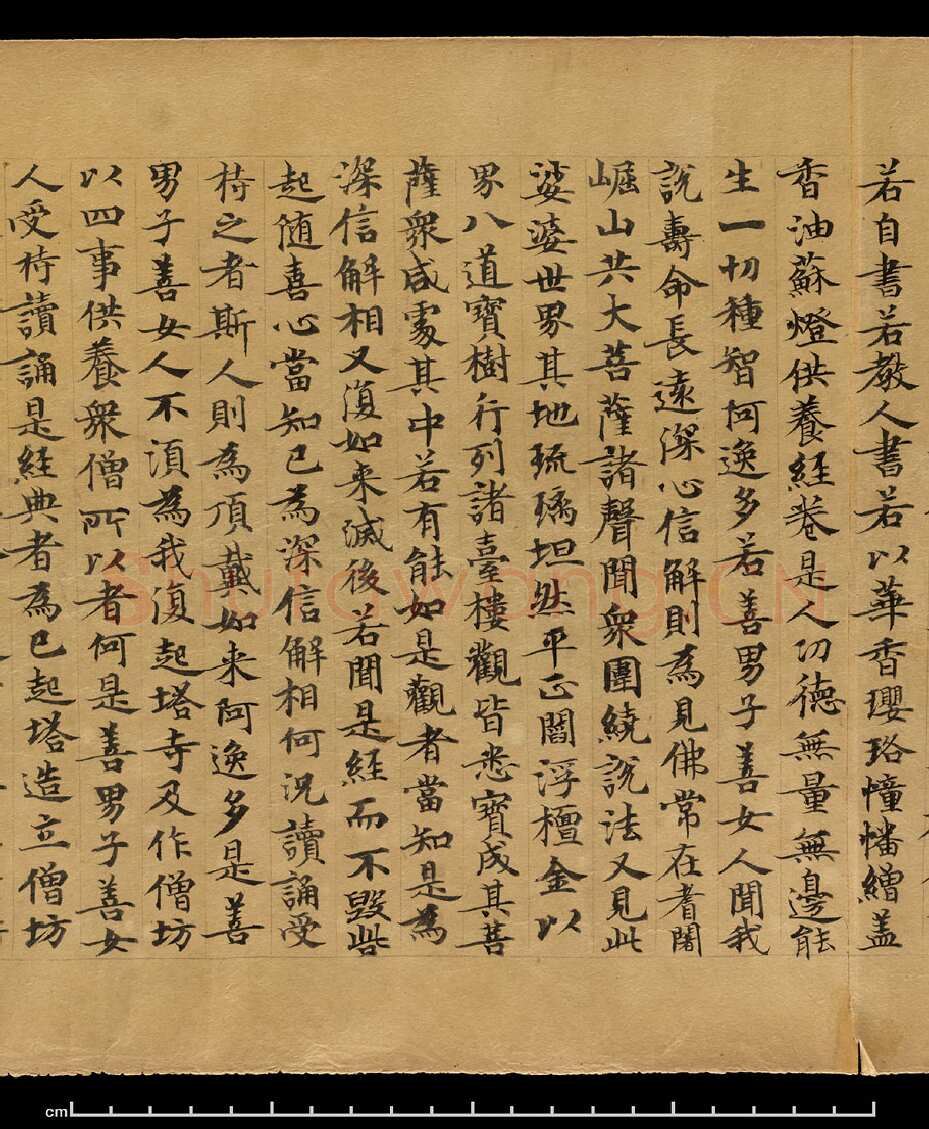 若自書若教人書若以華香瓔珞幢幡繒盖
香油蘇燈供養經卷是人功德無量無邊能
生一切種智阿逸多若善男子善女人聞我
說壽命長遠深心信解則為見佛常在耆闍
崛山共大菩薩諸聲聞衆圍繞說法又見此
娑婆世界其地琉璃坦然平正閻浮檀金以
界八道寶樹行列諸臺樓觀皆悉寶成其菩
薩衆咸處其中若有能如是觀者當知是為
深信解相又復如来滅後若聞是經而不毀呰
起随喜心當知已為深信解相何況讀誦受
持之者斯人則為頂戴如来阿逸多是善
男子善女人不湏為我復起塔寺及作僧坊
以四事供養衆僧所以者何是善男子善女
人受持讀誦是經典者為已起塔造立僧坊
Shufawang.CN
cm